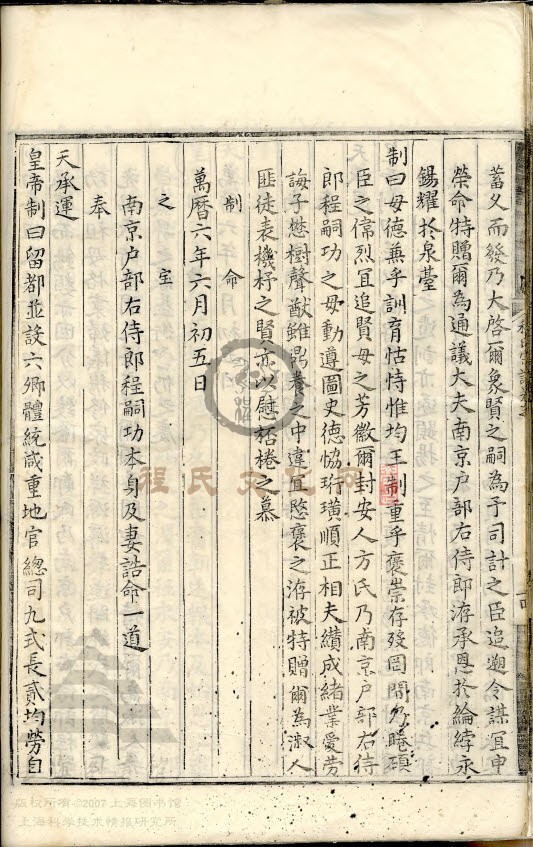 蓄久而發乃大啓爾象賢之嗣為予司計之臣追遡令謀宜申
榮命特贈爾為通議大夫南京户部右侍郎洊承恩於綸綍永
錫耀於泉臺
制曰母德兼乎訓育怙恃惟均王制重乎褒崇存殁罔間乃睠碩
臣之偉烈宜追賢母之芳徽爾封安人方氏乃南京户部右侍
郎程嗣功之母動遵圖史德恊珩璜順正相夫纘成緒業愛勞
誨子懋樹聲猷雖鼎養之中違宜愍褒之洊被特贈爾為淑人
匪徒表機杼之賢亦以慰桮棬之慕
制命
萬曆六年六月初五日
之宝
南京户部右侍郎程嗣功本身及妻誥命一道
奉
天承運
皇帝制曰留都並設六卿體統咸重地官總司九式長貳均勞自
程氏文化网
版权所有©2007上海图书馆
上海科学技术情报研究所